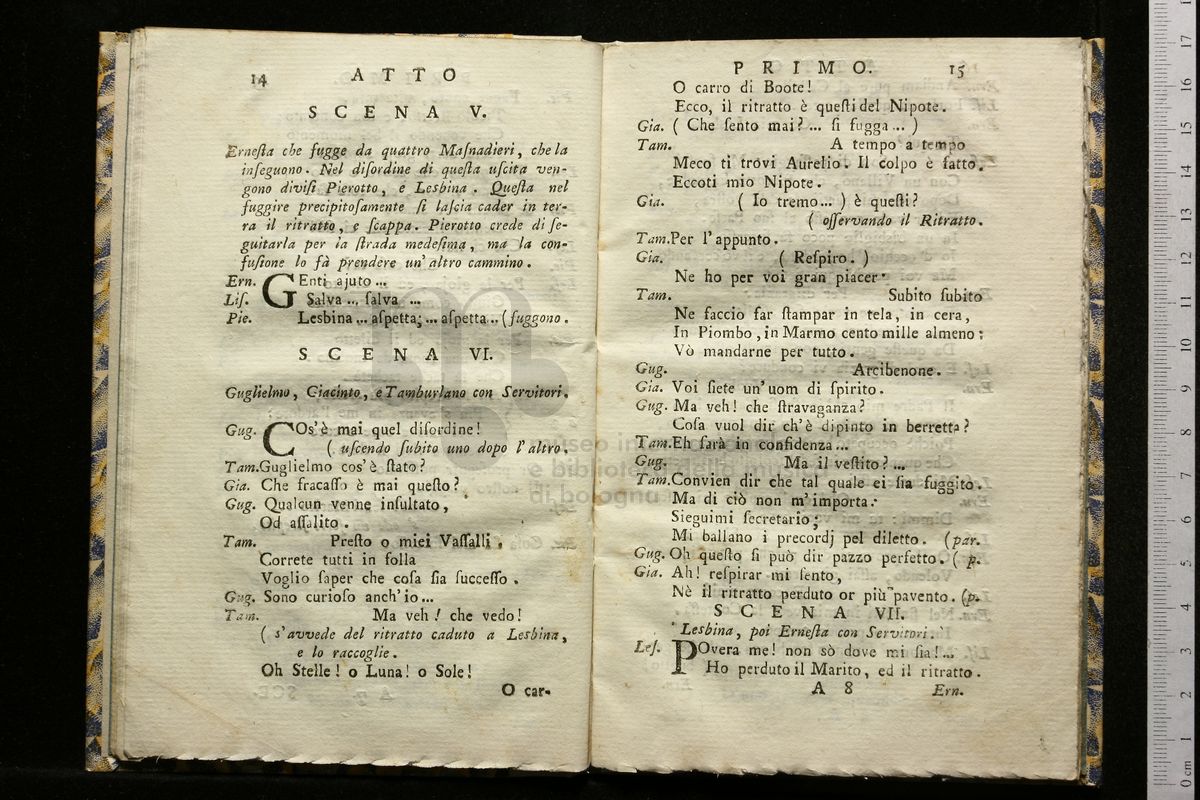 14 ATTO
SCENA V.
Erneſta che fugge da quattro Maſnadieri, che la
inſeguono. Nel diſordine di queſta uſcita ven-
gono diviſi Pierotto, e Lesbina. Queſta nel
fuggire precipitoſamente ſi laſcia cader in ter-
ra il ritratto, e ſcappa. Pierotto crede di ſe-
guitarla per la ſtrada medeſima, ma la con-
fuſione lo fà prendere un' altro cammino.
Ern. GEnti ajuto ...
Liſ. Salva ... ſalva ...
Pie. Lesbina ... aſpetta; ... aſpetta... (fuggono.
SCENA VI.
Guglielmo, Giacinto, e Tamburlano con Servitori.
Gug. COs'è mai quel diſordine!
( uſcendo ſubito uno dopo l'altro.
Tam. Guglielmo cos'è ſtato?
Gia. Che fracaſſo è mai queſto?
Gug. Qualcun venne inſultato,
Od aſſalito.
Tam. Preſto o miei Vaſſalli,
Correte tutti in folla
Voglio ſaper che coſa ſia ſucceſſo.
Gug. Sono curioſo anch'io...
Tam. Ma veh! che vedo!
( s'avvede del ritratto caduto a Lesbina,
e lo raccoglie.
Oh Stelle! o Luna! o Sole!
O car-
PRIMO. 15
O carro di Boote!
Ecco, il ritratto è queſti del Nipote.
Gia. ( Che ſento mai? ... ſi fugga ... )
Tam. A tempo a tempo
Meco ti trovi Aurelio. Il colpo è fatto.
Eccoti mio Nipote.
Gia. ( Io tremo... ) è queſti?
( oſſervando il Ritratto.
Tam. Per l'appunto.
Gia. ( Reſpiro. )
Ne ho per voi gran piacer.
Tam. Subito ſubito
Ne faccio far ſtampar in tela, in cera,
In Piombo, in Marmo cento mille almeno:
Vò mandarne per tutto.
Gug. Arcibenone.
Gia. Voi ſiete un'uom di ſpirito.
Gug. Ma veh! che ſtravaganza?
Coſa vuol dir ch'è dipinto in berretta?
Tam. Eh ſarà in confidenza...
Gug. Ma il veſtito? ...
Tam. Convien dir che tal quale ei ſia fuggito.
Ma di ciò non m'importa:
Sieguimi ſecretario;
Mi ballano i precordj pel diletto. (par.
Gug. Oh queſto ſi può dir pazzo perfetto. ( p.
Gia. Ah! reſpirar mi ſento,
Nè il ritratto perduto or più pavento. (p.
SCENA VII.
Lesbina, poi Erneſta con Servitori.
Leſ. POvera me! non sò dove mi ſia!...
Ho perduto il Marito, ed il ritratto.
A 8 Ern.